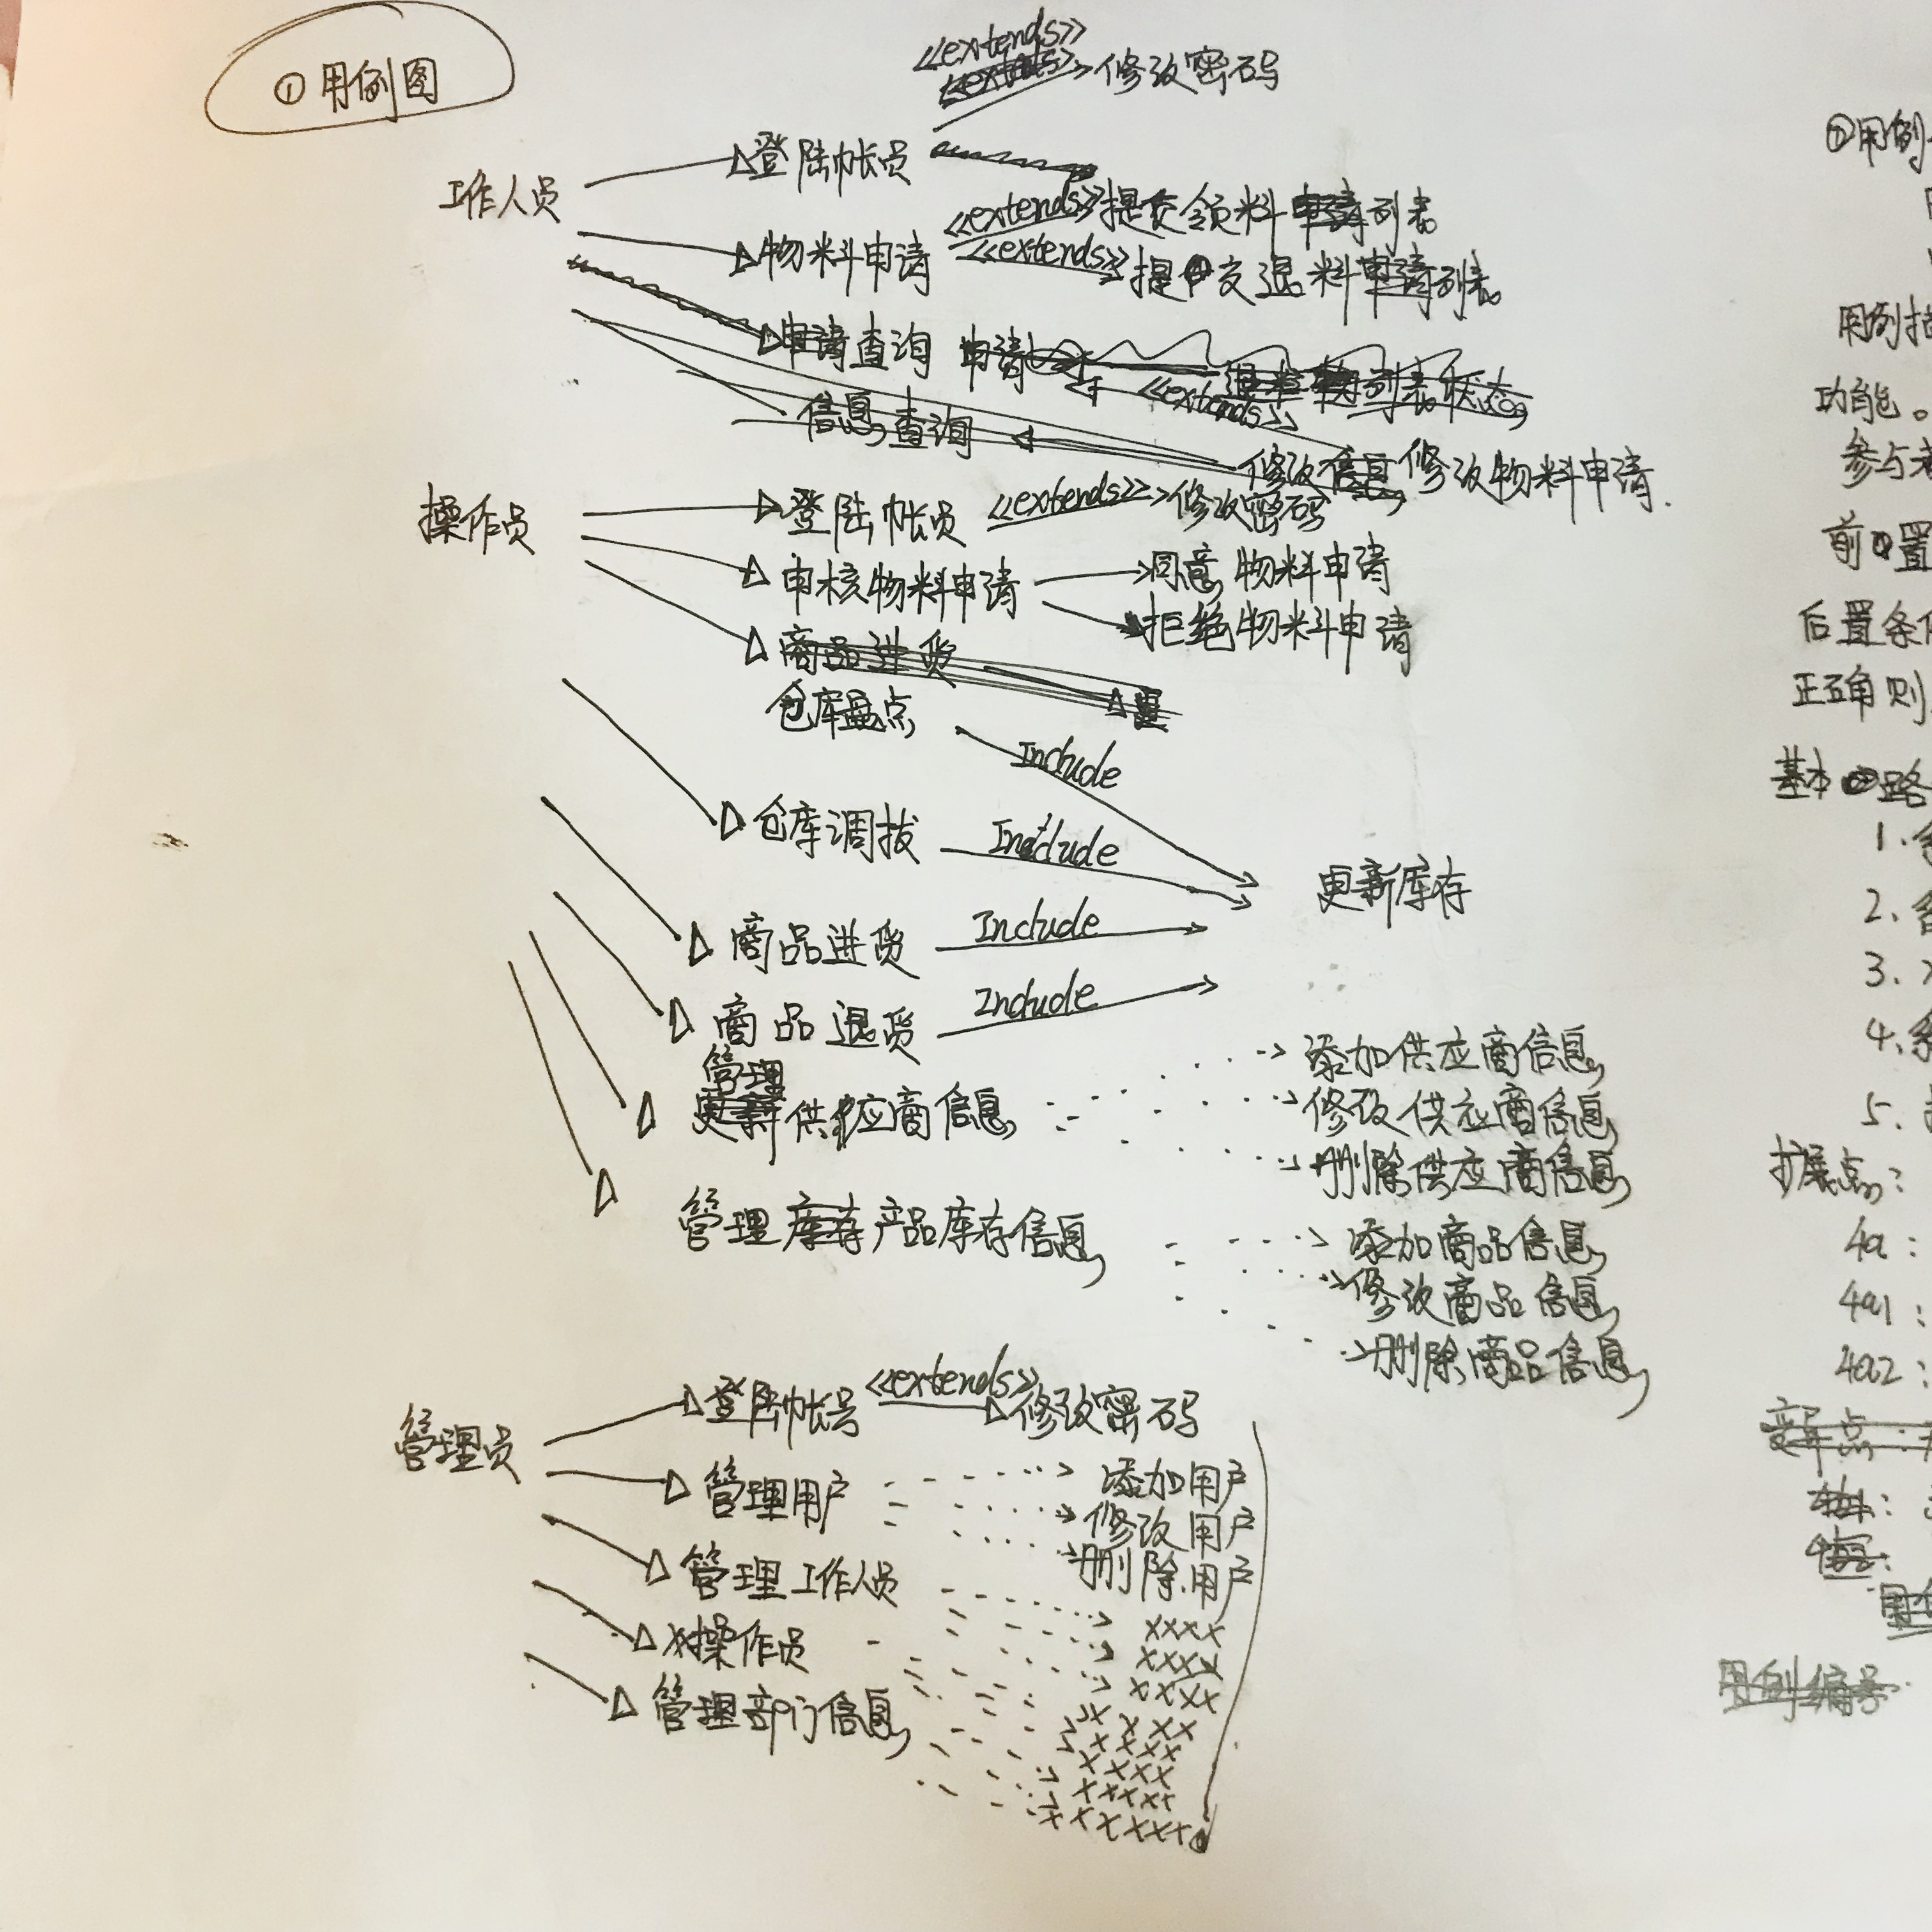 ①用例图
<<extends>>
<<extends>> 修改密码
工作人员
登陆帐员
物料申请
<<extends>> 提交领料申请列表
<<extends>> 提交退料申请列表
申请查询 申请
列表状态
<<extends>>
信息查询
修改信息 修改物料申请.
操作员
登陆帐员 <<extends>> 修改密码
审核物料申请
同意物料申请
拒绝物料申请
商品进货
仓库盘点
Include
仓库调拔 Include
更新库存
商品进货 Include
商品退货 Include
管理
更新供应商信息
添加供应商信息
修改供应商信息
删除供应商信息
管理库存产品库存信息
添加商品信息
修改商品信息
删除商品信息
管理员
登陆帐号 <<extends>> 修改密码
管理用户
添加用户
修改用户
删除用户
管理工作人员
xxxx
xxxx
xxxx
x操作员
xxxx
xxxx
xxxx
管理部门信息
xxxxx
xxxxxx
①用例
用例
功能。
参与
前置
后置条
正确则
基本路
1.
2.
3.
4.
5.
扩展点:
4a:
4a1:
4a2:
用例编号